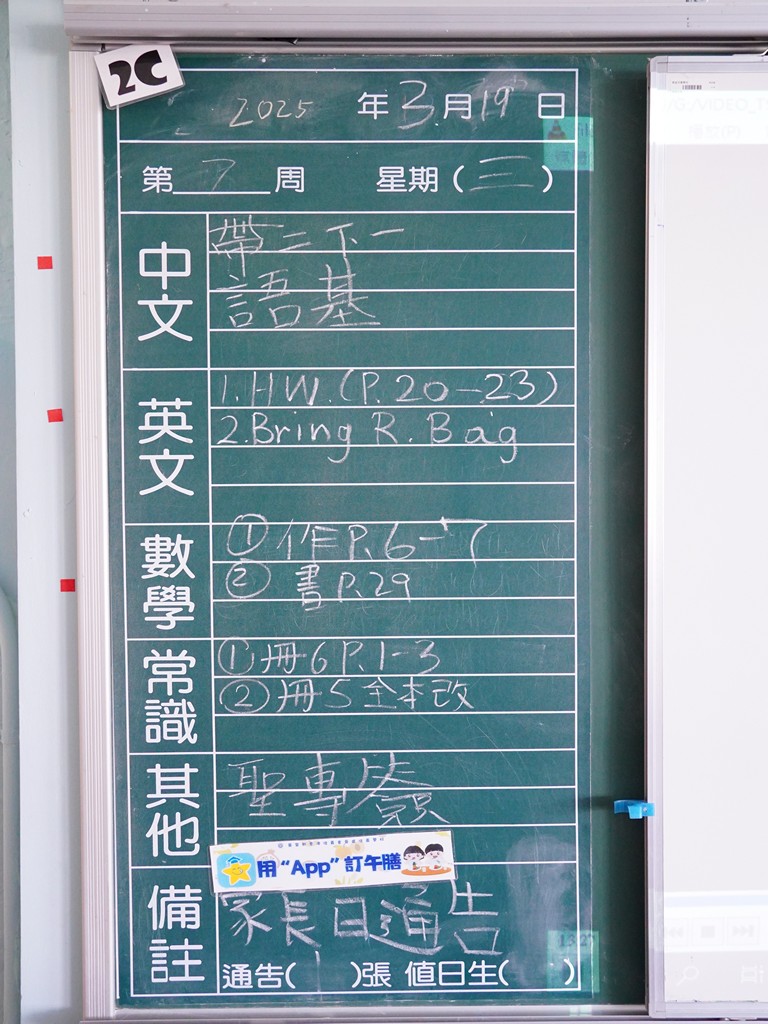 2C
2025年3月19日
第7周 星期(三)
中文
帶二下一
語基
英文
1. HW. (P. 20-23)
2. Bring R. Bag
數學
① 作P. 6-7
② 書P. 29
常識
① 冊6 P. 1-3
② 冊5 全本改
其他
聖專
用"App"訂午膳
備註
家長日通告
通告(1)張 值日生( )